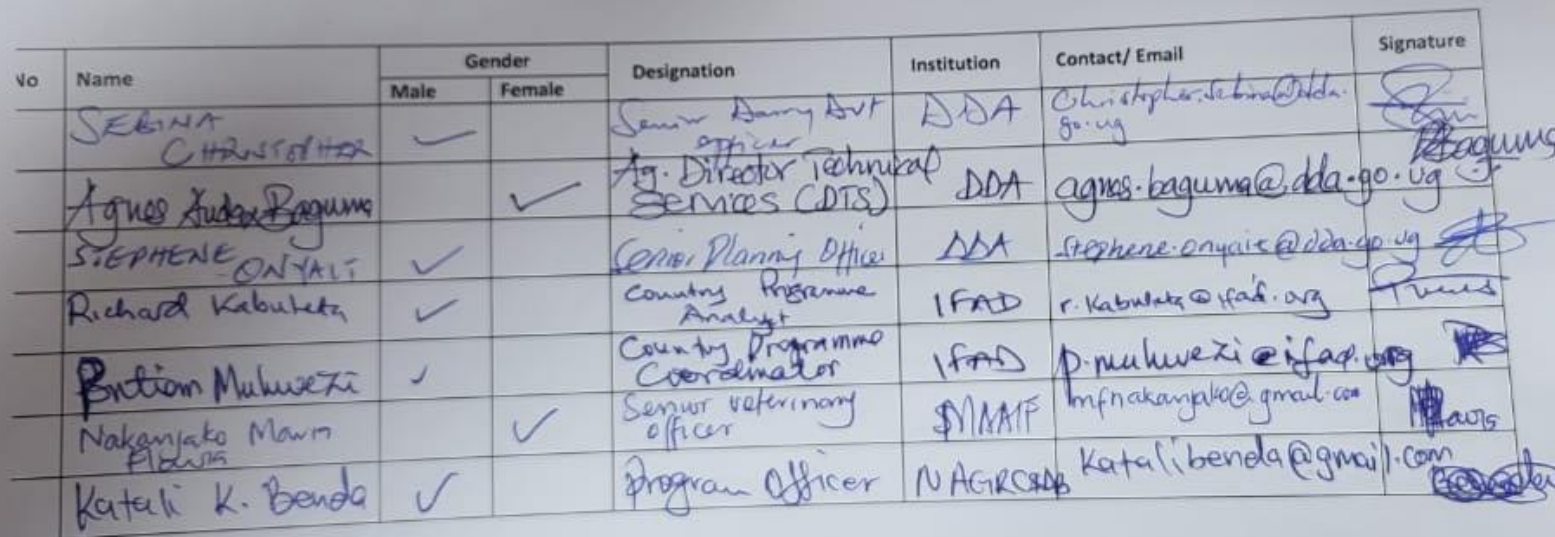 No Name Gender Designation Institution Contact/ Email Signature
Male Female
SEBINA CHRISTOPHER ✓ Senior Dairy Dvt officer DDA Christopher.sebina@dda.go.ug
Agnes Baguma ✓ Ag. Director Technical Services (DTS) DDA agnes.baguma@dda.go.ug Baguma
STEPHENE ONYAIT ✓ Senior Planning Officer DDA Stephene.onyait@dda.go.ug
Richard Kabuleta ✓ Country Programme Analyst IFAD r.kabuleta@ifad.org
Muhwezi ✓ Country Programme Coordinator IFAD p.muhwezi@ifad.org
Nakanjako ✓ Senior veterinary officer MAAIF mfnakanjako@gmail.com
Katali K. Benda ✓ Program Officer NAGRC&DB Katalibenda@gmail.com